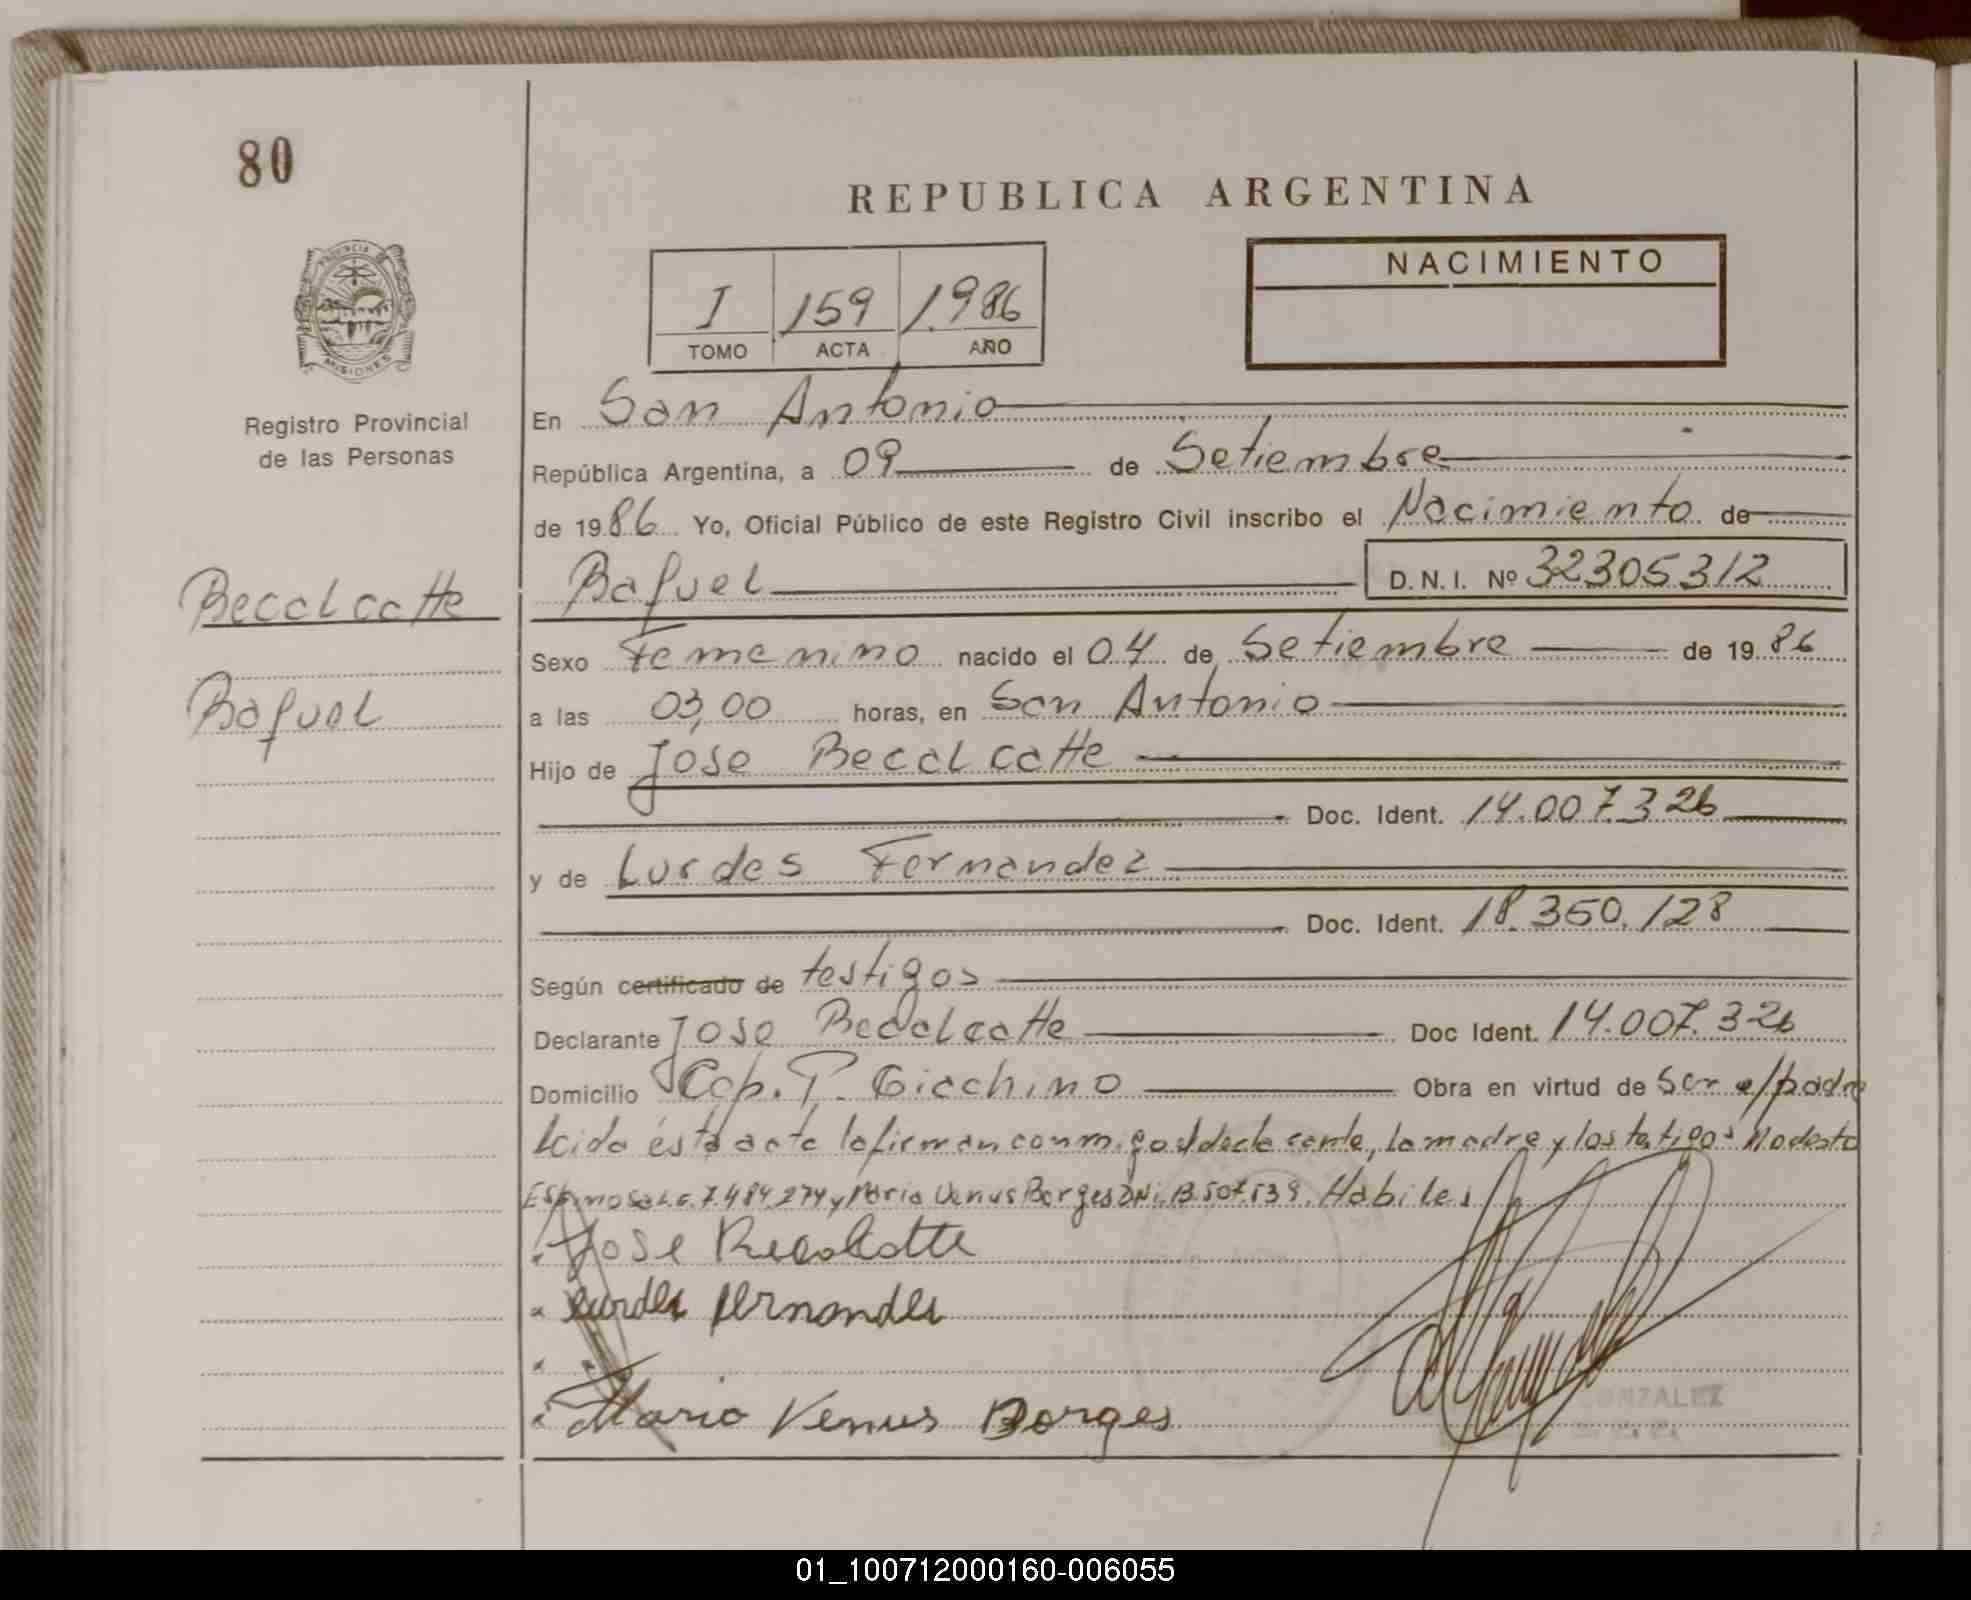 80
REPUBLICA ARGENTINA
PROVINCIA DE
MISIONES
Registro Provincial
de las Personas
I 159 1.986
TOMO ACTA AÑO
NACIMIENTO
En San Antonio
República Argentina, a 09 de Setiembre
de 1986 Yo, Oficial Público de este Registro Civil inscribo el Nacimiento de
Becalcatte
Rafuel D.N.I. Nº 32305312
Sexo Femenino nacido el 04 de Setiembre de 1986
Rafuel
a las 03,00 horas, en San Antonio
Hijo de Jose Becalcatte
Doc. Ident. 14.007.326
y de Lurdes Fernandez
Doc. Ident. 18.350.128
Según certificado de testigos
Declarante Jose Becalcatte Doc Ident. 14.007.326
Domicilio Cap. P. Giachino Obra en virtud de Ser el padre
Leida ésta acta la firman conmigo el declarante, la madre y los testigos Modesto
Espinosa L.E. 7.484.274 y Maria Venus Borges DNi. 13.507.539. Habiles
Jose Recalcatte
Lurdes fernandes
Maria Venus Borges
GONZALEZ
01_100712000160-006055